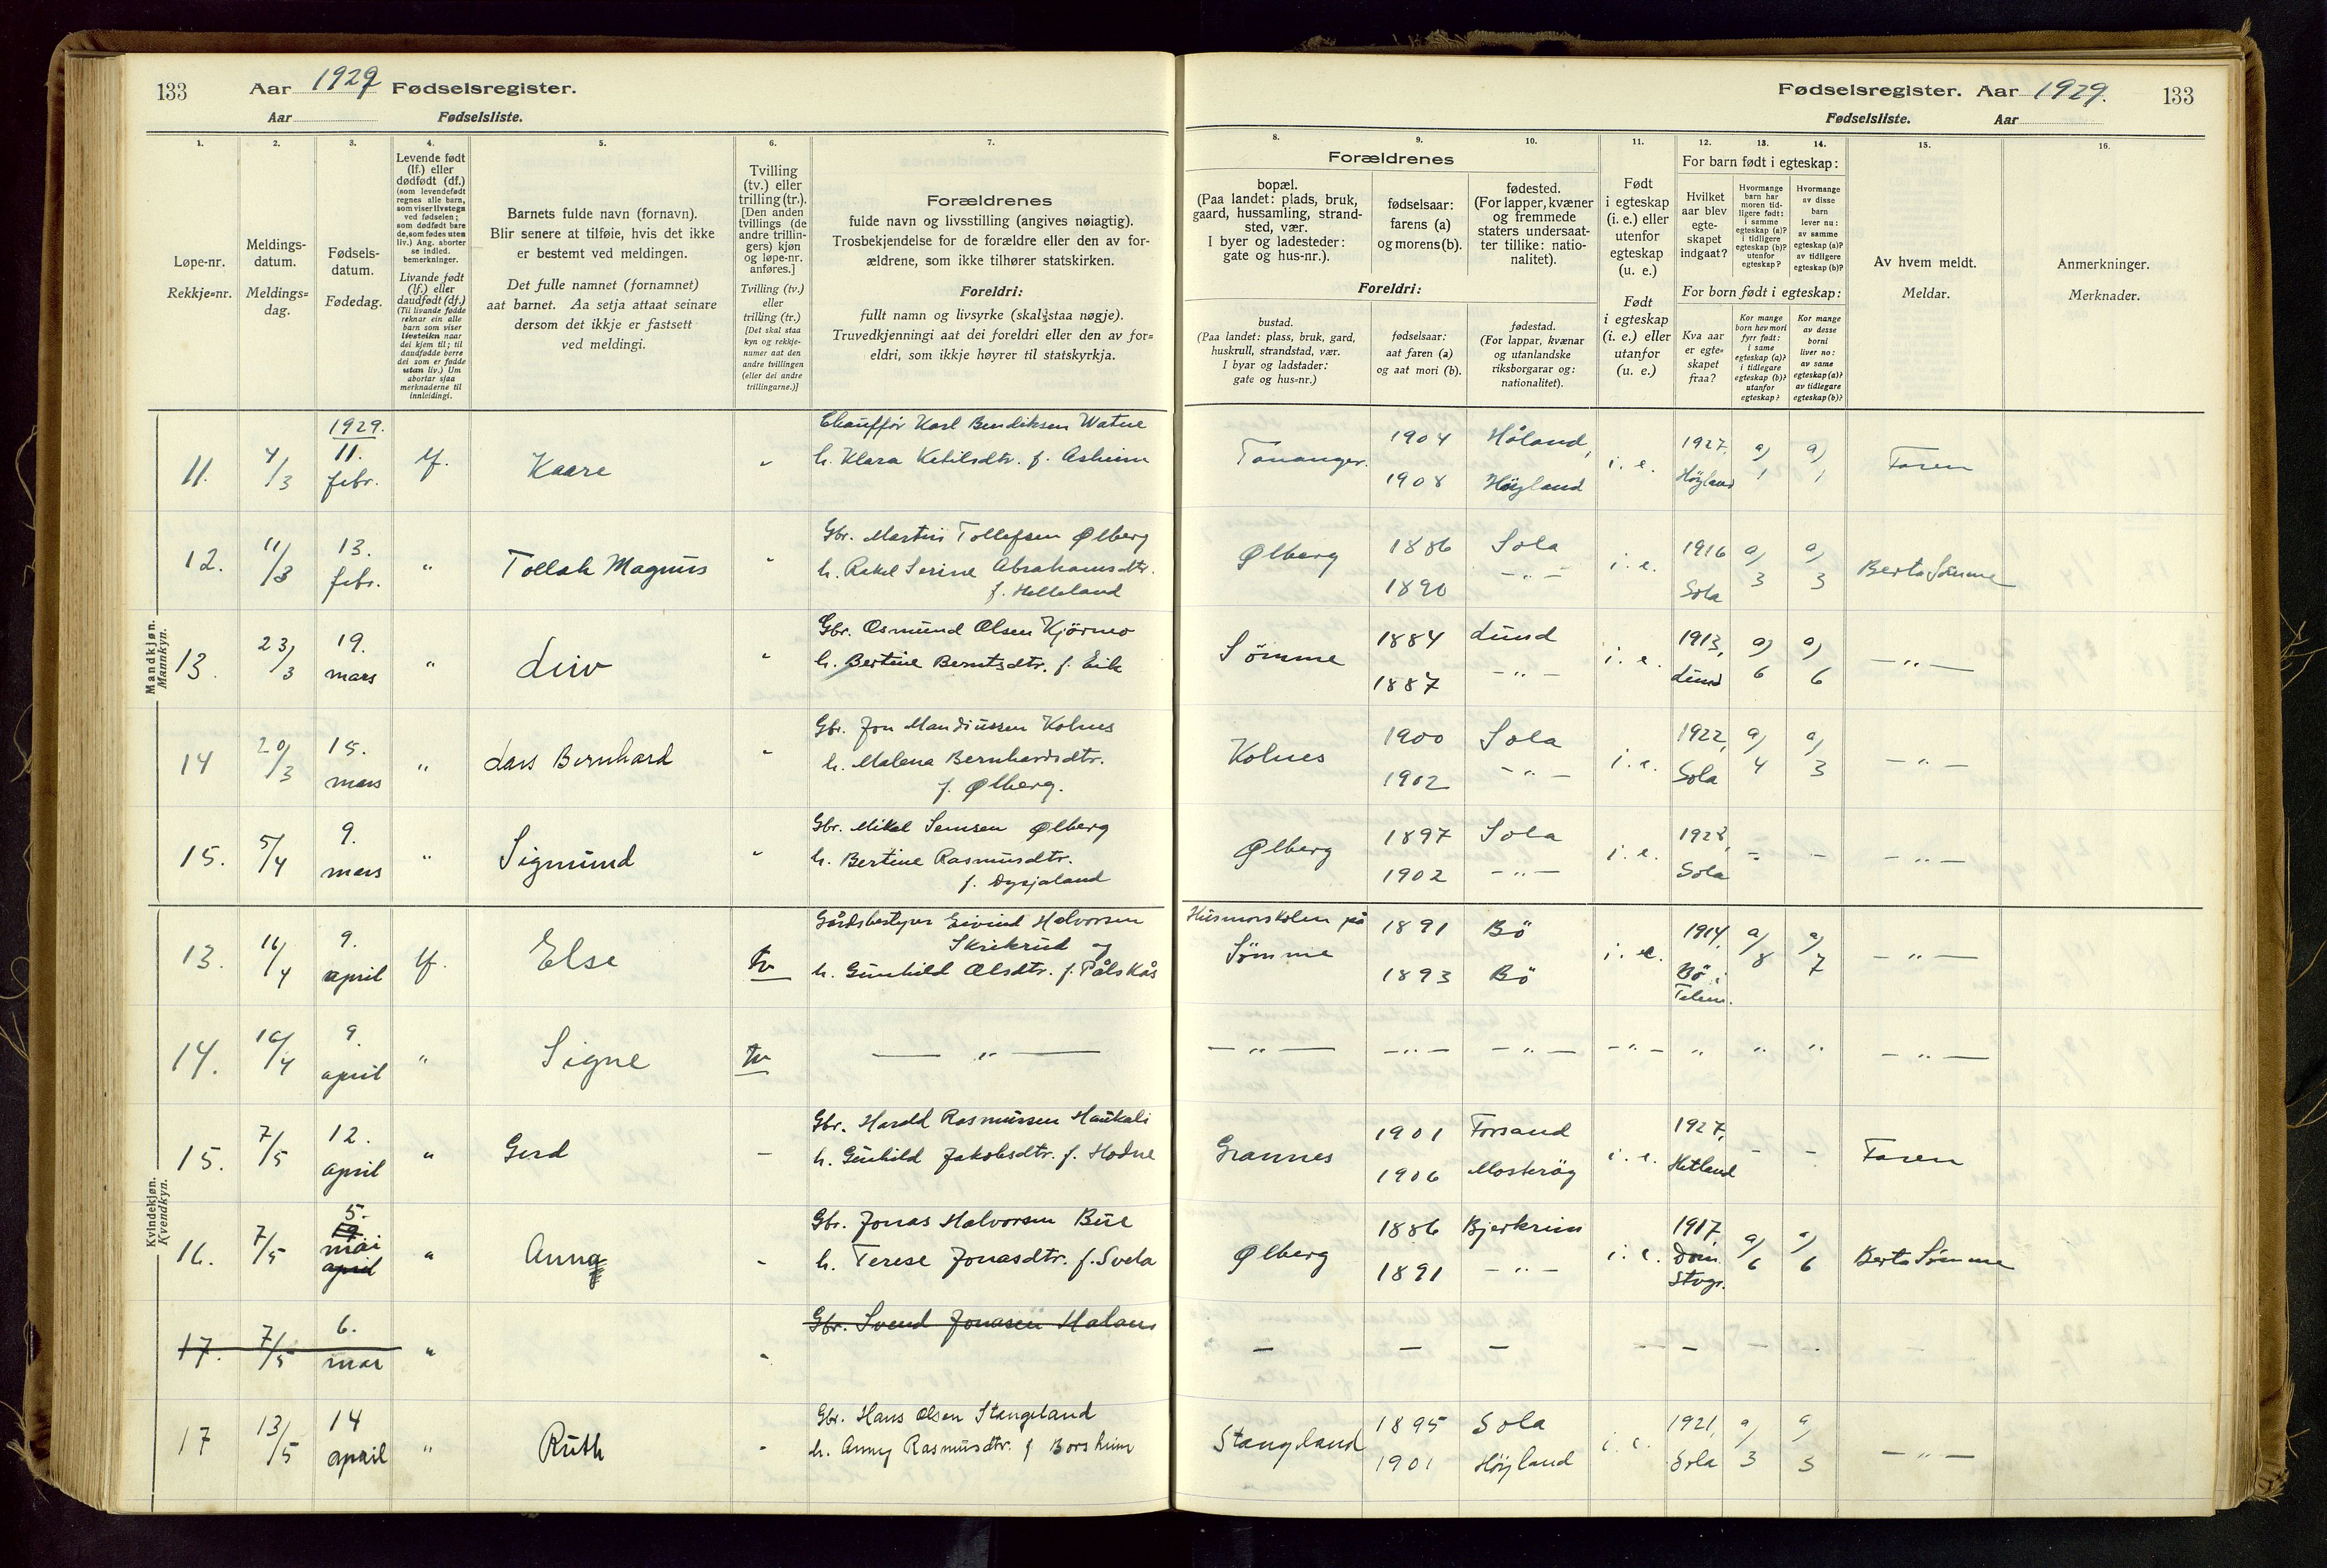 133 Aar 1929 Fødselsregister.
Aar Fødselsliste.
Fødselsregister. Aar 1929. 133
Fødselsliste. Aar
1. 2. 3. 4. 5. 6. 7.
Løpe-nr.
Rekkje=nr.
Meldings-
datum.
Meldings=
dag.
Fødsels-
datum.
Fødedag.
Levende født
(lf.) eller
dødfødt (df.)
(som levendefødt
regnes alle barn,
som viser livstegn
ved fødselen;
som dødfødt bare
de, som fødes uten
liv.) Ang. aborter
se indled.
bemerkninger.
Livande født
(lf.) eller
daudfødt (df.)
(Til livande fødde
reknar ein alle
barn som viser
livsteikn naar
dei kjem til; til
daudfødde berre
dei som er fødde
utan liv.) Um
abortar sjaa
merknaderne til
innleidingi.
Barnets fulde navn (fornavn).
Blir senere at tilføie, hvis det ikke
er bestemt ved meldingen.
Det fulle namnet (fornamnet)
aat barnet. Aa setja attaat seinare
dersom det ikkje er fastsett
ved meldingi.
Tvilling
(tv.) eller
trilling (tr.).
[Den anden
tvillings (de
andre trillin-
gers) kjøn
og løpe-nr.
anføres.]
Tvilling (tv.)
eller
trilling (tr.)
[Det skal staa
kyn og rekkje-
numer aat den
andre tvillingen
(eller dei andre
trillingarne.)]
Forældrenes
fulde navn og livsstilling (angives nøiagtig).
Trosbekjendelse for de forældre eller den av for-
ældrene, som ikke tilhører statskirken.
Foreldri:
fullt namn og livsyrke (skal staa nøgje).
Truvedkjenningi aat dei foreldri eller den av for=
eldri, som ikkje høyrer til statskyrkja.
8. 9. 10. 11. 12. 13. 14. 15. 16.
Forældrenes
bopæl.
(Paa landet: plads, bruk,
gaard, hussamling, strand-
sted, vær.
I byer og ladesteder:
gate og hus-nr.).
fødselsaar:
farens (a)
og morens (b).
fødested.
(For lapper, kvæner
og fremmede
staters undersaat-
ter tillike: natio-
nalitet).
Foreldri:
bustad.
(Paa landet: plass, bruk, gard,
huskrull, strandstad, vær.
I byar og ladstader:
gate og hus=nr.)
fødselsaar:
aat faren (a)
og aat mori (b).
fødestad.
(For lappar, kvænar
og utanlandske
riksborgarar og:
nationalitet).
Født
i egteskap
(i. e.) eller
utenfor
egteskap
(u. e.)
Født
i egteskap
(i. e.) eller
utanfor
(u. e.)
For barn født i egteskap:
Hvilket
aar blev
egte-
skapet
indgaat?
Hvormange
barn har
moren tid-
ligere født:
i samme
egteskap (a)?
i tidligere
egteskap (b)?
utenfor
egteskap?
Hvormange
av disse
barn
lever nu:
av samme
egteskap (a)?
av tidligere
egteskap (b)?
For born født i egteskap:
Kva aar
er egte=
skapet
fraa?
Kor mange
born hev mori
fyrr født:
i same
egteskap (a)?
i tidlegare
egteskap (b)?
utanfor
egteskap?
Kor mange
av desse
borni
liver no:
av same
egteskap (a)?
av tidlegare
egteskap (b)?
Av hvem meldt.
Meldar.
Anmerkninger.
Merknader.
Mandkjøn.
Mannkyn.
11. 4/3 1929. 11. febr. lf. Kaare " Chauffør Karl Bendiksen Watne
h. Klara Ketilsdtr. f. Asheim
Tananger. 1904 Håland, 1908 Høyland i. e. 1927, Høyland a) 1 a) 1 Faren
12. 11/3 13. febr. " Tollak Magnus " Gbr. Martin Tollefsen Ølberg
h. Rakel Serine Abrahamsdtr.
f. Helleland
Ølberg 1886 Sola 1890 - " - i. e. 1916 Sola a) 3 a) 3 Berta Sømme
13. 23/3 19. mars " Liv " Gbr. Osmund Olsen Kjörmo
h. Bertine Berntsdtr. f. Eik
Sømme 1884 Lund 1887 - " - i. e. 1913, Lund a) 6 a) 6 - " -
14 20/3 15. mars " Lars Bernhard " Gbr. Jon Mandiussen Kolnes
h. Malena Bernhardsdtr.
f. Ølberg.
Kolnes 1900 Sola 1902 - " - i. e. 1922, Sola a) 4 a) 3 - " -
15. 5/4 9. mars " Sigmund " Gbr. Mikal Semsen Ølberg
h. Bertine Rasmusdtr.
f. Dysjaland
Ølberg 1897 Sola 1902 - " - i. e. 1928, Sola - - - " -
Kvindekjøn.
Kvendkyn.
13. 16/4 9. april lf. Else tv Gårdsbestyrer Eivind Halvorsen
Skrikrud og
h. Gunhild Olsdtr. f. Pålskås
Husmorskolen på Sømme 1891 Bö 1893 Bö i. e. 1914, Bö i Telem. a) 8 a) 7 - " -
14. 16/4 9. april " Signe tv - " -
- " - - " - - " - - " - " " " - " -
15. 7/5 12. april " Gerd - Gbr. Harald Rasmussen Haukali
h. Gunhild Jakobsdtr. f. Hodne
Grannes 1901 Forsand 1906 Mosterøy i. e. 1927, Hetland - - Faren
16. 7/5 5. mai april " Anna - Gbr. Jonas Halvorsen Bue
h. Terese Jonasdtr. f. Svela
Ølberg 1886 Bjerkreim 1891 - " - i. e. 1917, Dom. Stvgr. a) 6 a) 6 Berta Sømme
17. 7/5 6. mai " - Gbr. Svend Jonasen
- - - - - - -
17 13/5 14 april " Ruth - Gbr. Hans Olsen Stangeland
h. Anny Rasmusdtr. f. Borsheim
Stangeland 1895 Sola 1901 Høyland i. e. 1921, Sola a) 3 a) 3 - " -